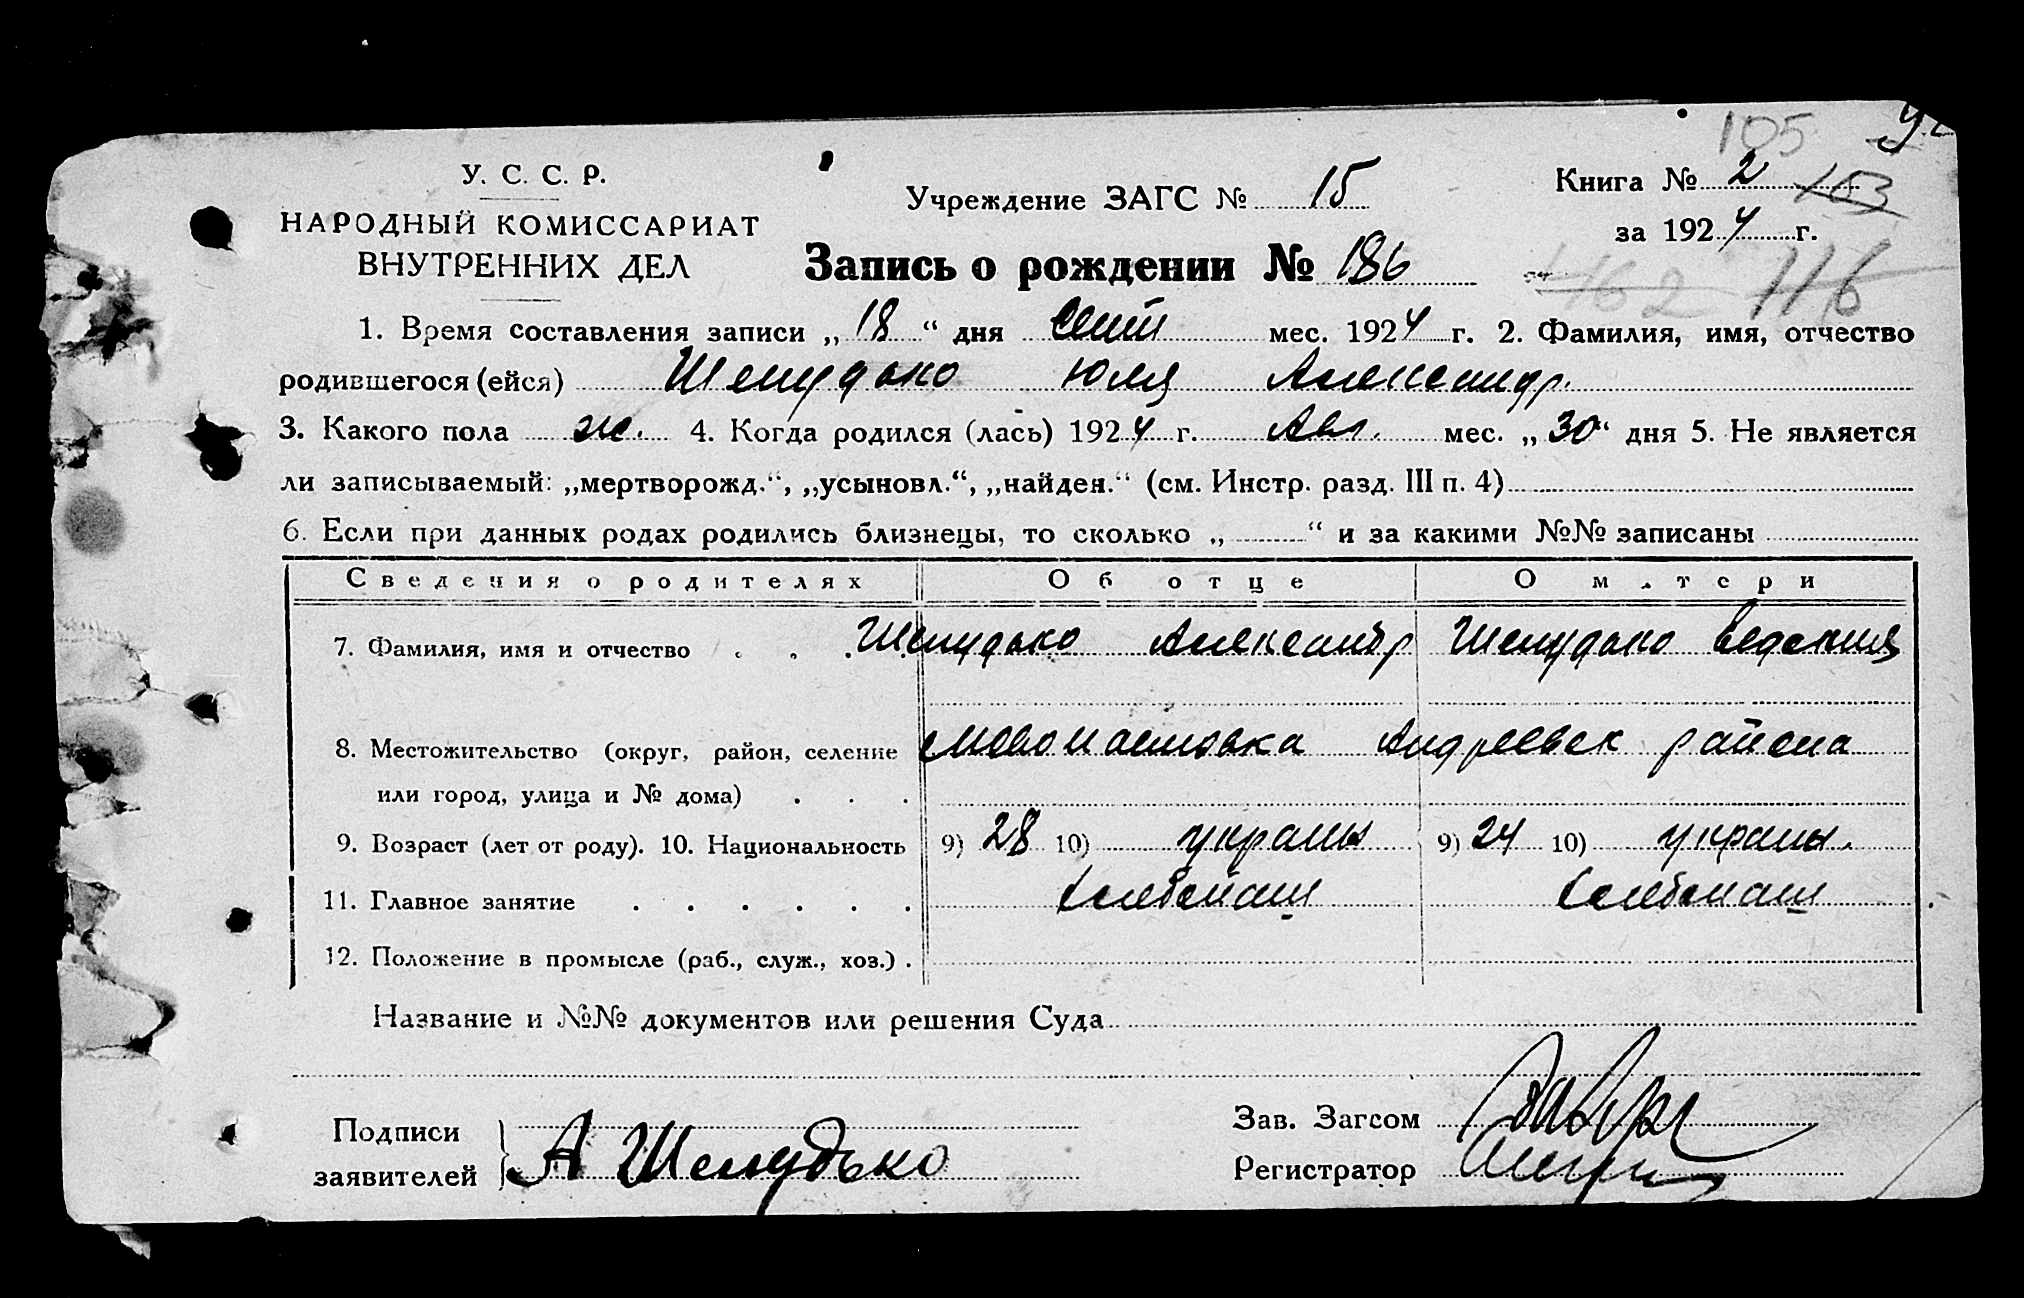 105
У. С. С. Р.
НАРОДНЫЙ КОМИССАРИАТ
ВНУТРЕННИХ ДЕЛ
Учреждение ЗАГС № 15
Книга № 2 103
за 1924 г.
Запись о рождении № 186
162 116
1. Время составления записи „ 18 “ дня Сент мес. 1924 г. 2. Фамилия, имя, отчество
родившегося (ейся) Шелудько Юлия Александр.
3. Какого пола ж. 4. Когда родился (лась) 1924 г. Авг. мес. „ 30 “ дня 5. Не является
ли записываемый: „мертворожд.“, „усыновл.“, „найден.“ (см. Инстр. разд. III п. 4)
6. Если при данных родах родились близнецы, то сколько „ “ и за какими №№ записаны
Сведения о родителях Об отце О матери
7. Фамилия, имя и отчество . . . Шелудько Александр Шелудько
8. Местожительство (округ, район, селение Андреевск района
или город, улица и № дома) . . .
9. Возраст (лет от роду). 10. Национальность 9) 28 10) украин 9) 24 10) украин.
11. Главное занятие . . . . . . хлебопаш хлебопаш
12. Положение в промысле (раб., служ., хоз.) .
Название и №№ документов или решения Суда
Подписи
заявителей А Шелудько
Зав. Загсом
Регистратор